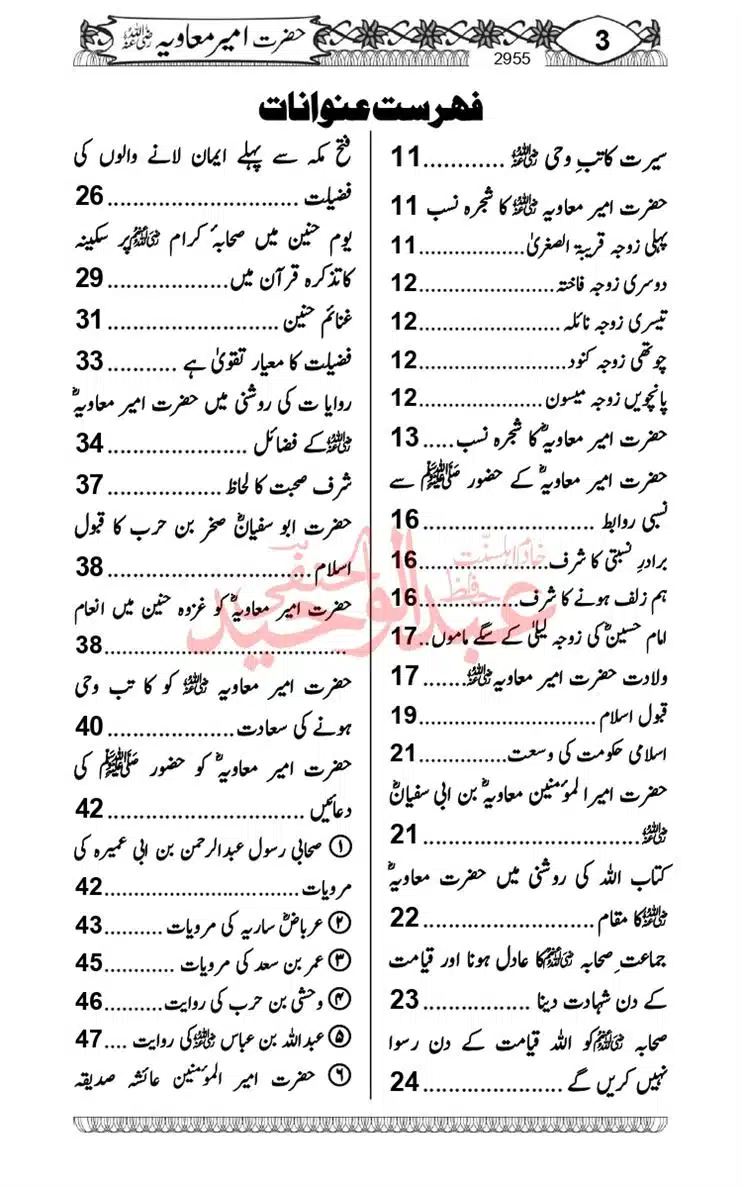 حضرت امیر معاویہ رضی اللہ عنہ
3
2955
فہرست عنوانات
سیرت کاتبِ وحی رضی اللہ عنہ ............ 11
حضرت امیر معاویہ رضی اللہ عنہ کا شجرہ نسب 11
پہلی زوجہ قریبۃ الصغریٰ.................. 11
دوسری زوجہ فاختہ....................... 12
تیسری زوجہ نائلہ....................... 12
چوتھی زوجہ کنود....................... 12
پانچویں زوجہ میسون.................... 12
حضرت امیر معاویہؓ کا شجرہ نسب..... 13
حضرت امیر معاویہؓ کے حضور ﷺ سے
نسبی روابط ......................... 16
برادرِ نسبتی کا شرف.................... 16
ہم زلف ہونے کا شرف................ 16
امام حسینؓ کی زوجہ لیلیٰ کے سگے ماموں.. 17
ولادت حضرت امیر معاویہ رضی اللہ عنہ....... 17
قبول اسلام .......................... 19
اسلامی حکومت کی وسعت............... 21
حضرت امیرا لمؤمنین معاویہؓ بن ابی سفیانؓ
رضی اللہ عنہ............................ 21
کتاب اللہ کی روشنی میں حضرت معاویہؓ
رضی اللہ عنہ کا مقام......................... 22
جماعت ِصحابہ رضی اللہ عنہم کا عادل ہونا اور قیامت
کے دن شہادت دینا ................ 23
صحابہ رضی اللہ عنہم کو اللہ قیامت کے دن رسوا
نہیں کریں گے ..................... 24
فتح مکہ سے پہلے ایمان لانے والوں کی
فضیلت ............................ 26
یوم حنین میں صحابہٴ کرام رضی اللہ عنہم پر سکینہ
کا تذکرہ قرآن میں.................. 29
غنائم حنین ......................... 31
فضیلت کا معیار تقویٰ ہے ........... 33
روایا ت کی روشنی میں حضرت امیر معاویہؓ
رضی اللہ عنہ کے فضائل ...................... 34
شرف صحبت کا لحاظ .................. 37
حضرت ابو سفیانؓ صخر بن حرب کا قبول
اسلام.............................. 38
حضرت امیر معاویہؓ کو غزوہ حنین میں انعام
................................... 38
حضرت امیر معاویہ رضی اللہ عنہ کو کا تب وحی
ہونے کی سعادت.................... 40
حضرت امیر معاویہؓ کو حضور ﷺ کی
دعائیں ............................. 42
① صحابی رسول عبدالرحمن بن ابی عمیرہ کی
مرویات............................. 42
② عرباضؓ ساریہ کی مرویات .......... 43
③ عمر بن سعد کی مرویات ............ 45
④ وحشی بن حرب کی روایت.......... 46
⑤ عبداللہ بن عباس رضی اللہ عنہ کی روایت .... 47
⑥ حضرت امیر المؤمنین عائشہ صدیقہ
خادم اہلسنت
حافظ عبدالوحید الحنفی